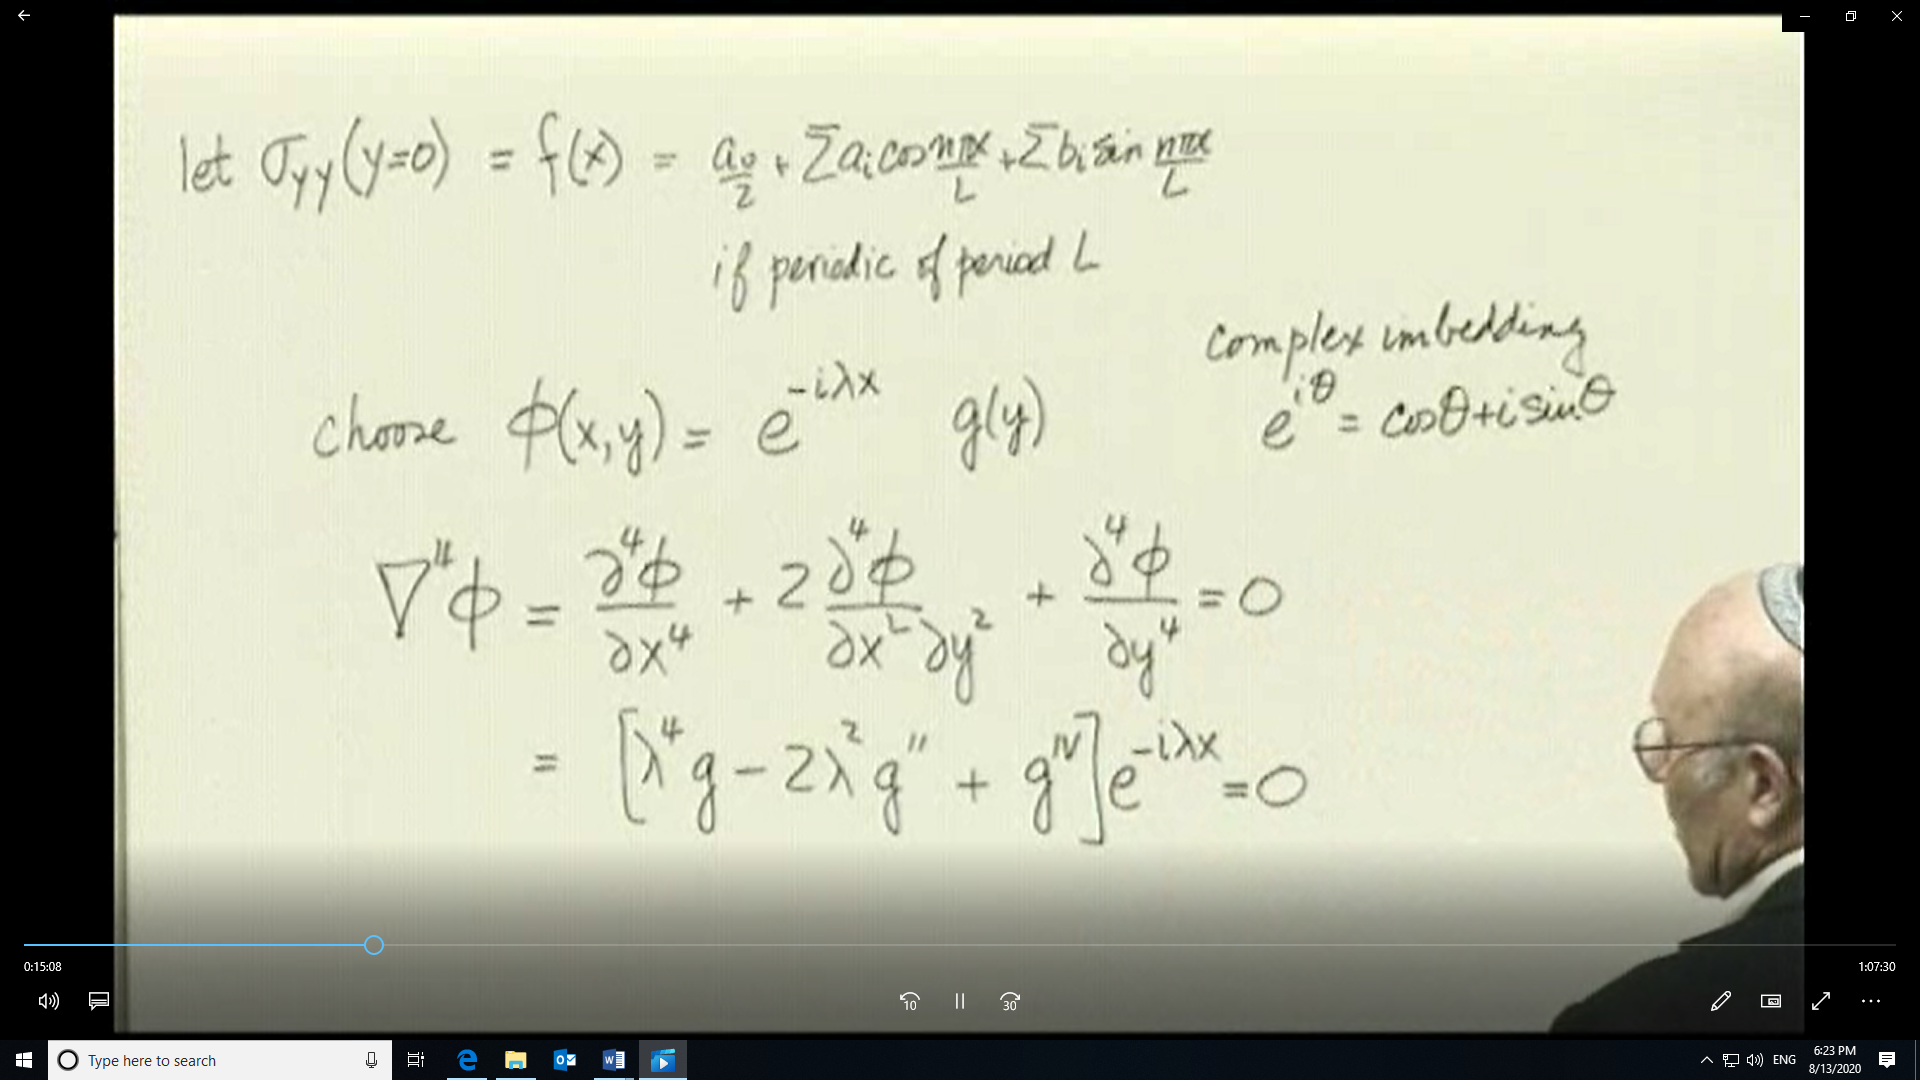 let σyy(y=0) = f(x) = a₀/2 + Σaᵢcos nπx/L + Σbᵢsin nπx/L
if periodic of period L
complex imbedding
e^{iθ} = cosθ+i sinθ
choose ϕ(x,y) = e^{-iλx} g(y)
∇⁴ϕ = ∂⁴ϕ/∂x⁴ + 2 ∂⁴ϕ/∂x²∂y² + ∂⁴ϕ/∂y⁴ = 0
= [λ⁴g − 2λ²g″ + g^{IV}]e^{-iλx} = 0
0:15:08
1:07:30
10
30
Type here to search
ENG
6:23 PM
8/13/2020